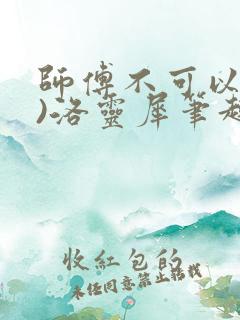 師傅不可以
)洛靈犀筆趣
收紅包的
未經同意禁止轉載